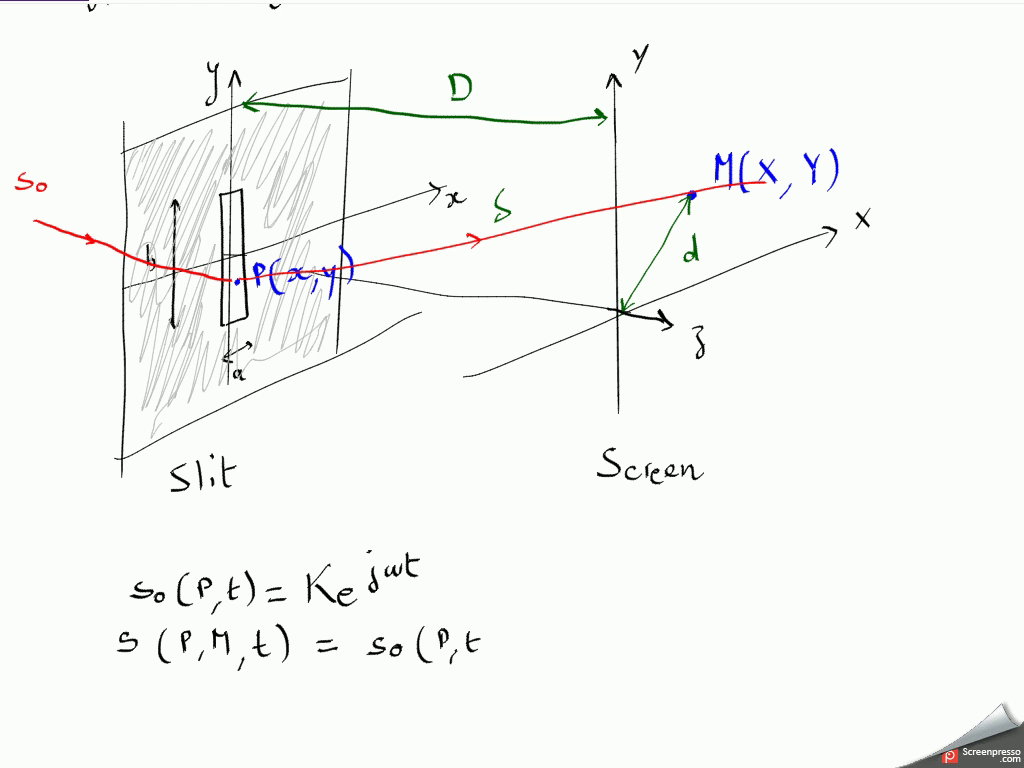 y
Y
D
M(X, Y)
s₀
x
S
X
b
P(x,y)
d
z
a
Slit
Screen
s₀(P,t) = Ke^jωt
s(P,M,t) = s₀(P,t
Screenpresso
.com